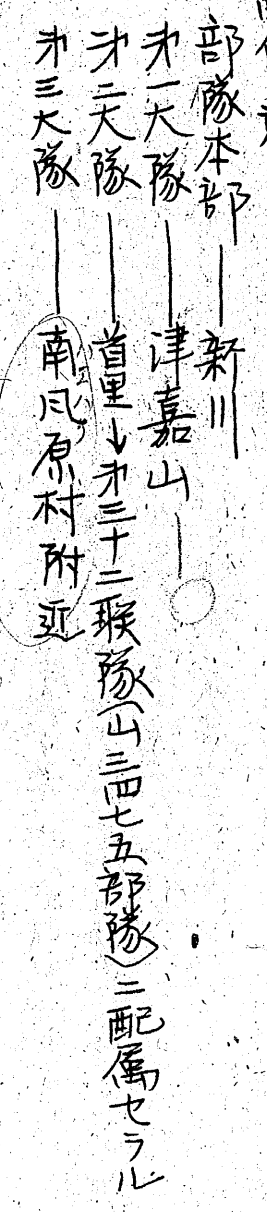 部隊本部――新川
第一大隊――津嘉山――
第二大隊――首里→第三十二聯隊(山三四七五部隊)ニ配属セラル
第三大隊――南風原村附近